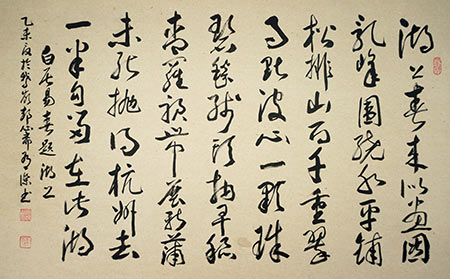 湖上春来似畫圖
乱峰圍繞水平鋪
松排山面千重翠
月點波心一顆珠
碧毯綫頭抽早稻
青羅裙帶展新蒲
未能抛得杭州去
一半勾留在此湖
白居易春题湖上
乙未夏於